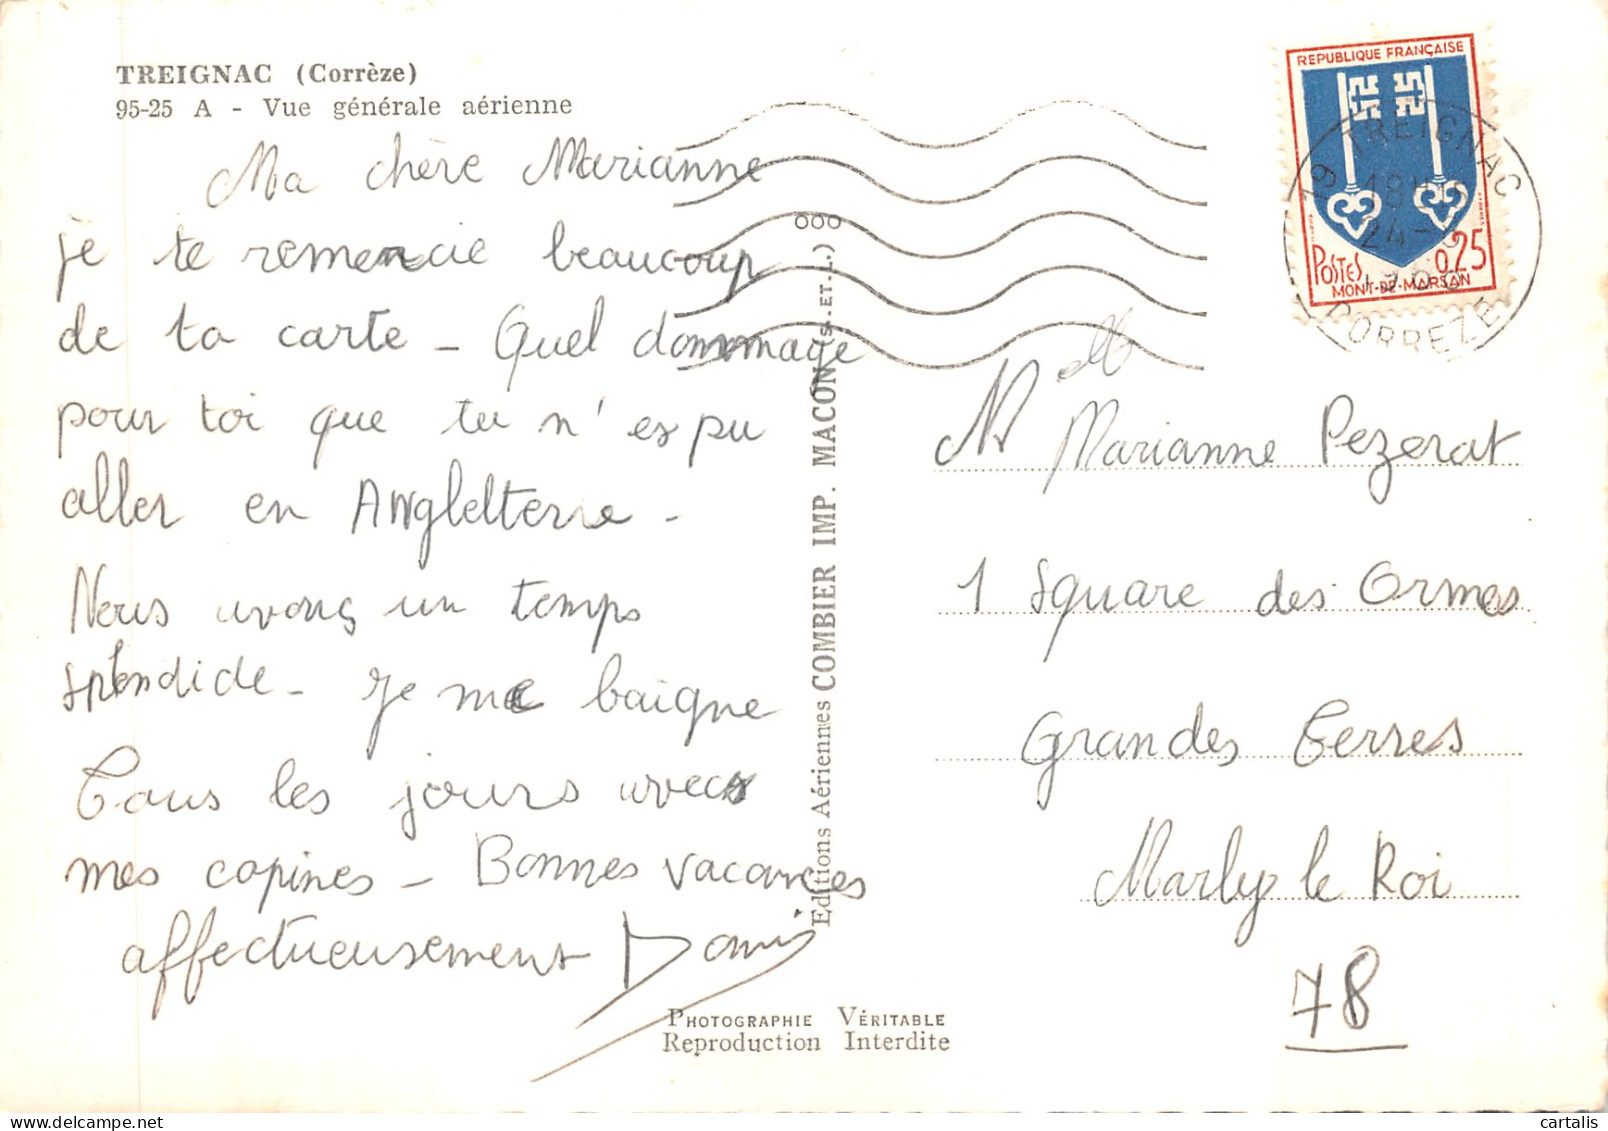 TREIGNAC (Corrèze)
95-25 A - Vue générale aérienne
Ma chère Marianne
je te remercie beaucoup
de ta carte - Quel dommage
pour toi que tu n'es pu
aller en Angleterre -
Nous avons un temps
splendide - Je me baigne
Tous les jours avec
mes copines - Bonnes vacances
affectueusement
PHOTOGRAPHIE VÉRITABLE
Reproduction Interdite
Editions Aériennes COMBIER IMP. MACON (S.-ET-L.)
REPUBLIQUE FRANÇAISE
POSTES 0,25
MONT-DE-MARSAN
19 TREIGNAC
CORREZE
Marianne Pezerat
1 Square des Ormes
Grandes Terres
Marly le Roi
78
cartalis
delcampe.net